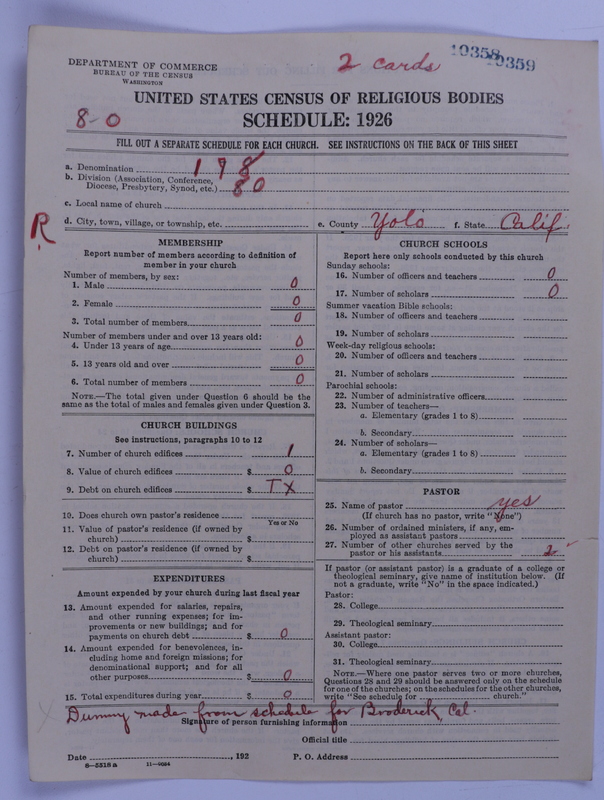 DEPARTMENT OF COMMERCE
BUREAU OF THE CENSUS
WASHINGTON
2 cards
10358
10359
UNITED STATES CENSUS OF RELIGIOUS BODIES
8-0
SCHEDULE: 1926
FILL OUT A SEPARATE SCHEDULE FOR EACH CHURCH. SEE INSTRUCTIONS ON THE BACK OF THIS SHEET
a. Denomination 198
b. Division (Association, Conference,
Diocese, Presbytery, Synod, etc.) 80
c. Local name of church
R
d. City, town, village, or township, etc. e. County Yolo f. State Calif.
MEMBERSHIP
Report number of members according to definition of
member in your church
Number of members, by sex:
1. Male 0
2. Female 0
3. Total number of members 0
Number of members under and over 13 years old:
4. Under 13 years of age 0
5. 13 years old and over 0
6. Total number of members 0
NOTE.—The total given under Question 6 should be the
same as the total of males and females given under Question 3.
CHURCH BUILDINGS
See instructions, paragraphs 10 to 12
7. Number of church edifices 1
8. Value of church edifices $ 0
9. Debt on church edifices $ TX
10. Does church own pastor's residence
Yes or No
11. Value of pastor's residence (if owned by
church) $
12. Debt on pastor's residence (if owned by
church) $
EXPENDITURES
Amount expended by your church during last fiscal year
13. Amount expended for salaries, repairs,
and other running expenses; for im-
provements or new buildings; and for
payments on church debt $ 0
14. Amount expended for benevolences, in-
cluding home and foreign missions; for
denominational support; and for all
other purposes $ 0
15. Total expenditures during year $ 0
CHURCH SCHOOLS
Report here only schools conducted by this church
Sunday schools:
16. Number of officers and teachers 0
17. Number of scholars 0
Summer vacation Bible schools:
18. Number of officers and teachers
19. Number of scholars
Week-day religious schools:
20. Number of officers and teachers
21. Number of scholars
Parochial schools:
22. Number of administrative officers
23. Number of teachers—
a. Elementary (grades 1 to 8)
b. Secondary
24. Number of scholars—
a. Elementary (grades 1 to 8)
b. Secondary
PASTOR
25. Name of pastor yes
(If church has no pastor, write "None")
26. Number of ordained ministers, if any, em-
ployed as assistant pastors
27. Number of other churches served by the
pastor or his assistants 2
If pastor (or assistant pastor) is a graduate of a college or
theological seminary, give name of institution below. (If
not a graduate, write "No" in the space indicated.)
Pastor:
28. College
29. Theological seminary
Assistant pastor:
30. College
31. Theological seminary
NOTE.—Where one pastor serves two or more churches,
Questions 28 and 29 should be answered only on the schedule
for one of the churches; on the schedules for the other churches,
write "See schedule for church."
Dummy made from schedule for Broderick, Cal.
Signature of person furnishing information
Official title
Date , 192 P. O. Address
8—5318 a 11—9024